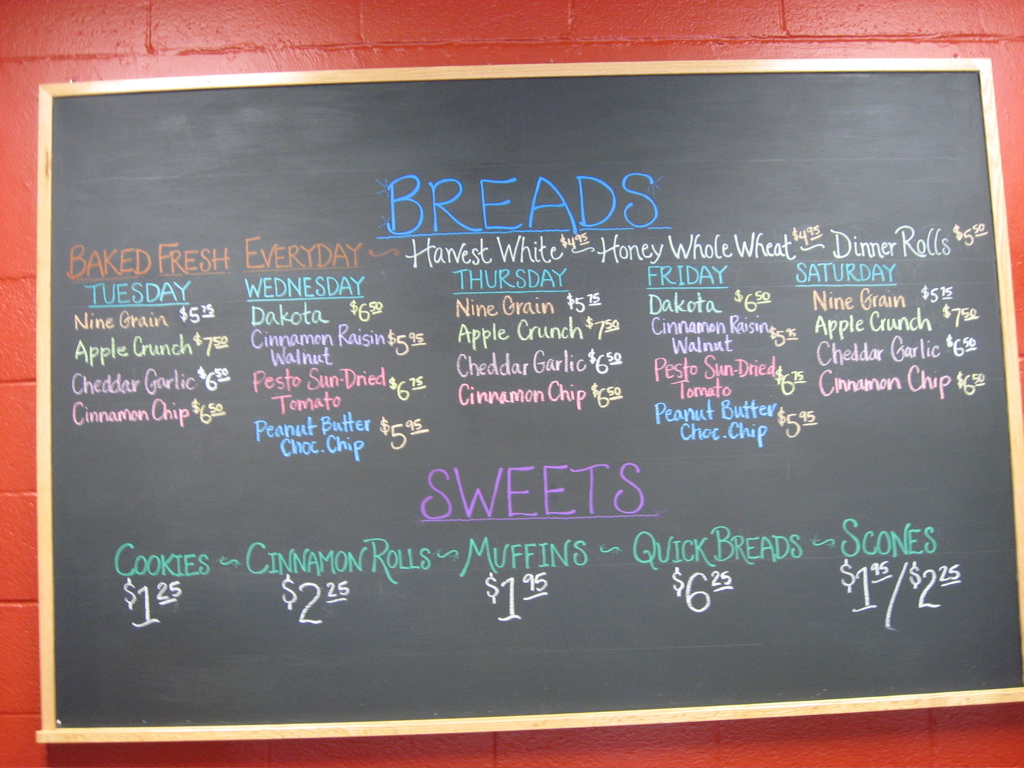 BREADS
BAKED FRESH EVERYDAY ~ Harvest White $4.95 ~ Honey Whole Wheat $4.95 ~ Dinner Rolls $5.50
TUESDAY
Nine Grain $5.75
Apple Crunch $7.50
Cheddar Garlic $6.50
Cinnamon Chip $6.50
WEDNESDAY
Dakota $6.50
Cinnamon Raisin $5.95
Walnut
Pesto Sun-Dried $6.75
Tomato
Peanut Butter $5.95
Choc. Chip
THURSDAY
Nine Grain $5.75
Apple Crunch $7.50
Cheddar Garlic $6.50
Cinnamon Chip $6.50
FRIDAY
Dakota $6.50
Cinnamon Raisin $5.95
Walnut
Pesto Sun-Dried $6.75
Tomato
Peanut Butter $5.95
Choc. Chip
SATURDAY
Nine Grain $5.75
Apple Crunch $7.50
Cheddar Garlic $6.50
Cinnamon Chip $6.50
SWEETS
COOKIES ~ CINNAMON ROLLS ~ MUFFINS ~ QUICK BREADS ~ SCONES
$1.25 $2.25 $1.95 $6.25 $1.95/$2.25